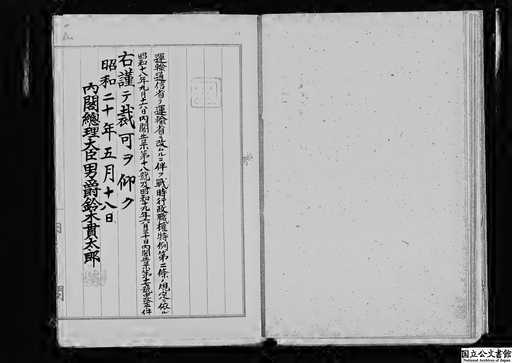 運輸通信省ヲ運輸省ニ改ムルニ伴フ戦時行政職権特例第二條ノ規定ニ依ル
昭和十八年九月十六日内閣告示第十八號及昭和十九年六月三十日内閣告示第十號中改正ノ件
右謹テ裁可ヲ仰ク
昭和二十年五月十八日
内閣總理大臣男爵鈴木貫太郎
国立公文書館
National Archives of Japan